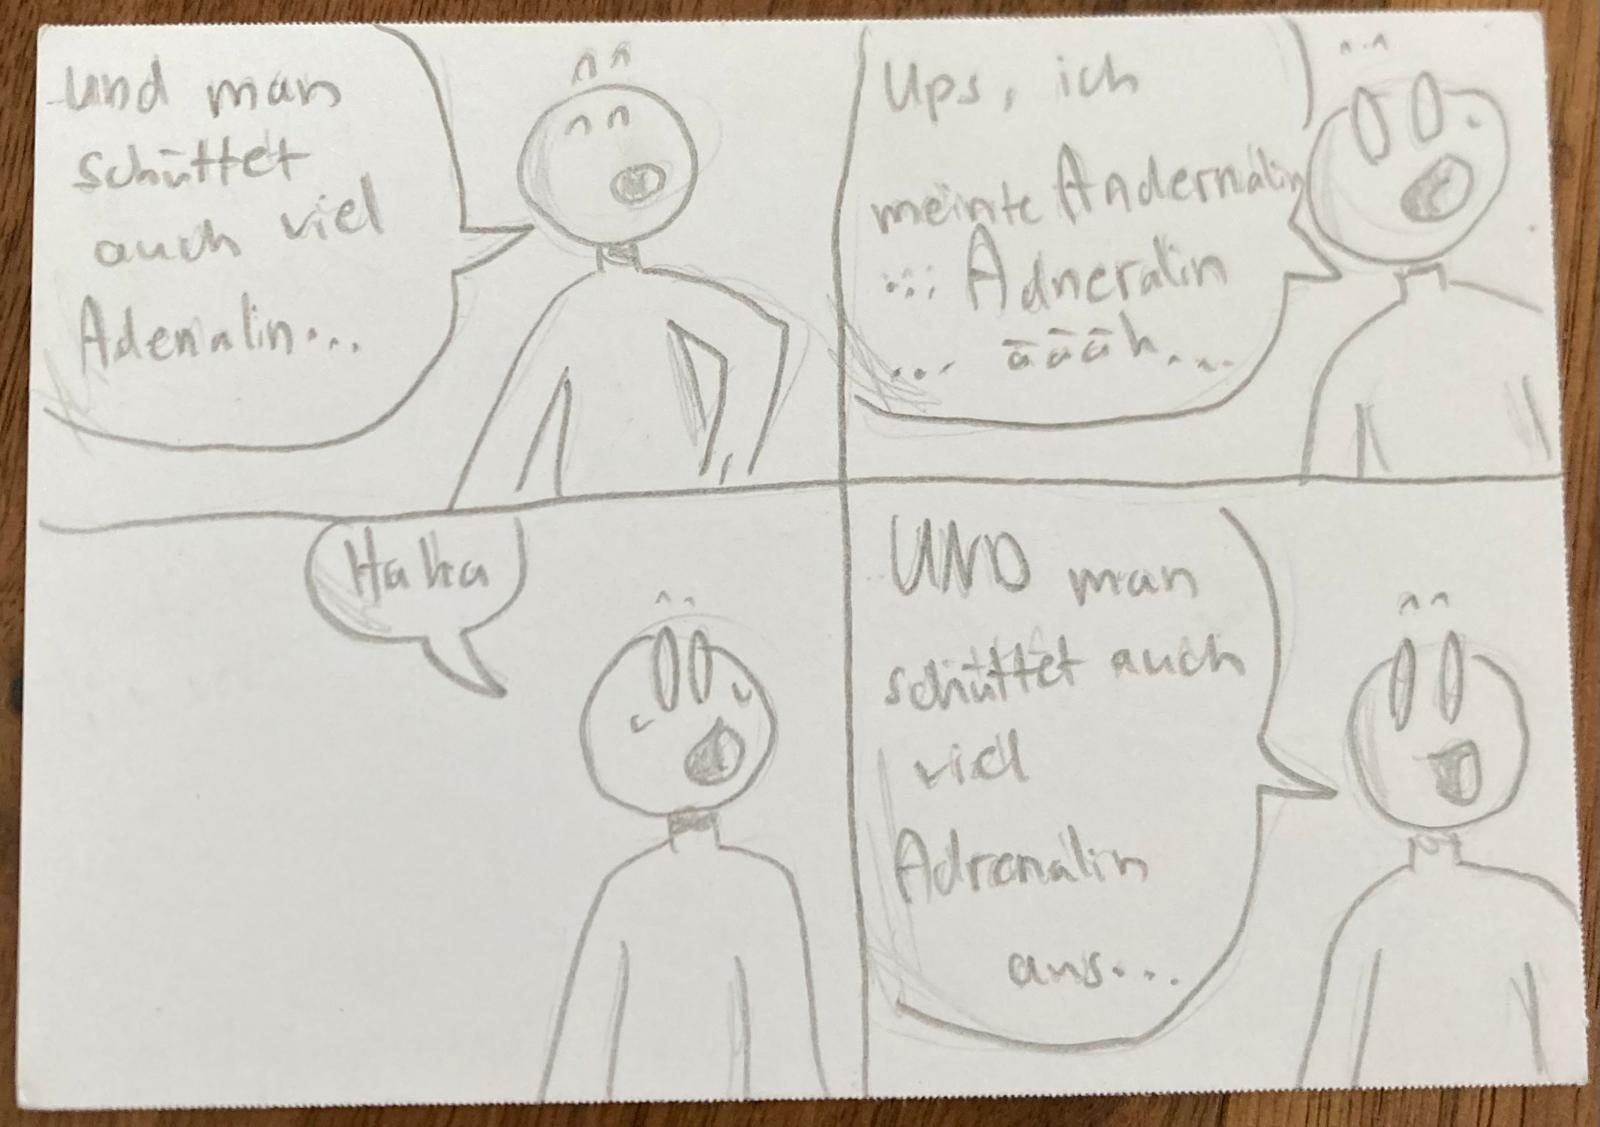 und man
schüttet
auch viel
Adernalin...
Ups, ich
meinte Andernalin
... Adneralin
... äääh...
Ha ha
UND man
schüttet auch
viel
Adrenalin
aus...